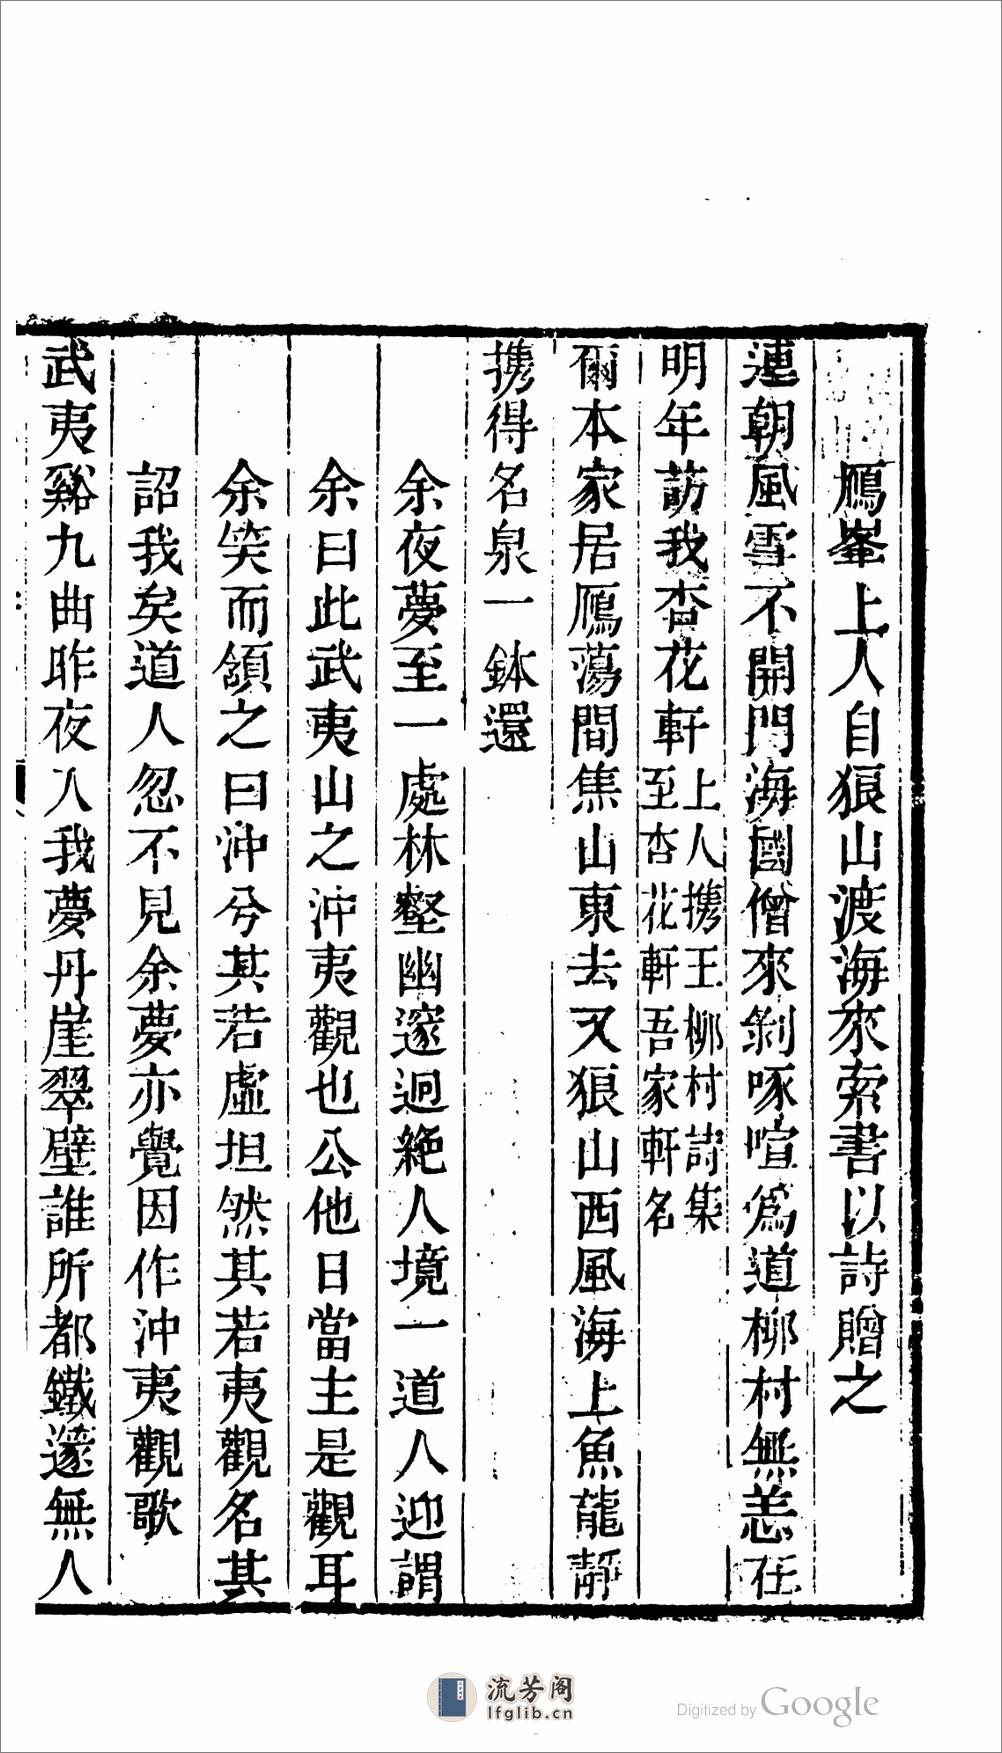 鴈峯上人自狼山渡海來索書以詩贈之
連朝風雪不開門海國僧來剝啄喧爲道柳村無恙在
明年訪我杏花軒上人携王柳村詩集
至杏花軒吾家軒名
爾本家居鴈蕩間焦山東去又狼山西風海上魚龍靜
携得名泉一鉢還
余夜夢至一處林壑幽邃迥絕人境一道人迎謂
余曰此武夷山之沖夷觀也公他日當主是觀耳
余笑而頷之曰沖兮其若虛坦然其若夷觀名其
詔我矣道人忽不見余夢亦覺因作沖夷觀歌
武夷谿九曲昨夜入我夢丹崖翠壁誰所都鐵邃無人
流芳阁
lfglib.cn
Digitized by Google